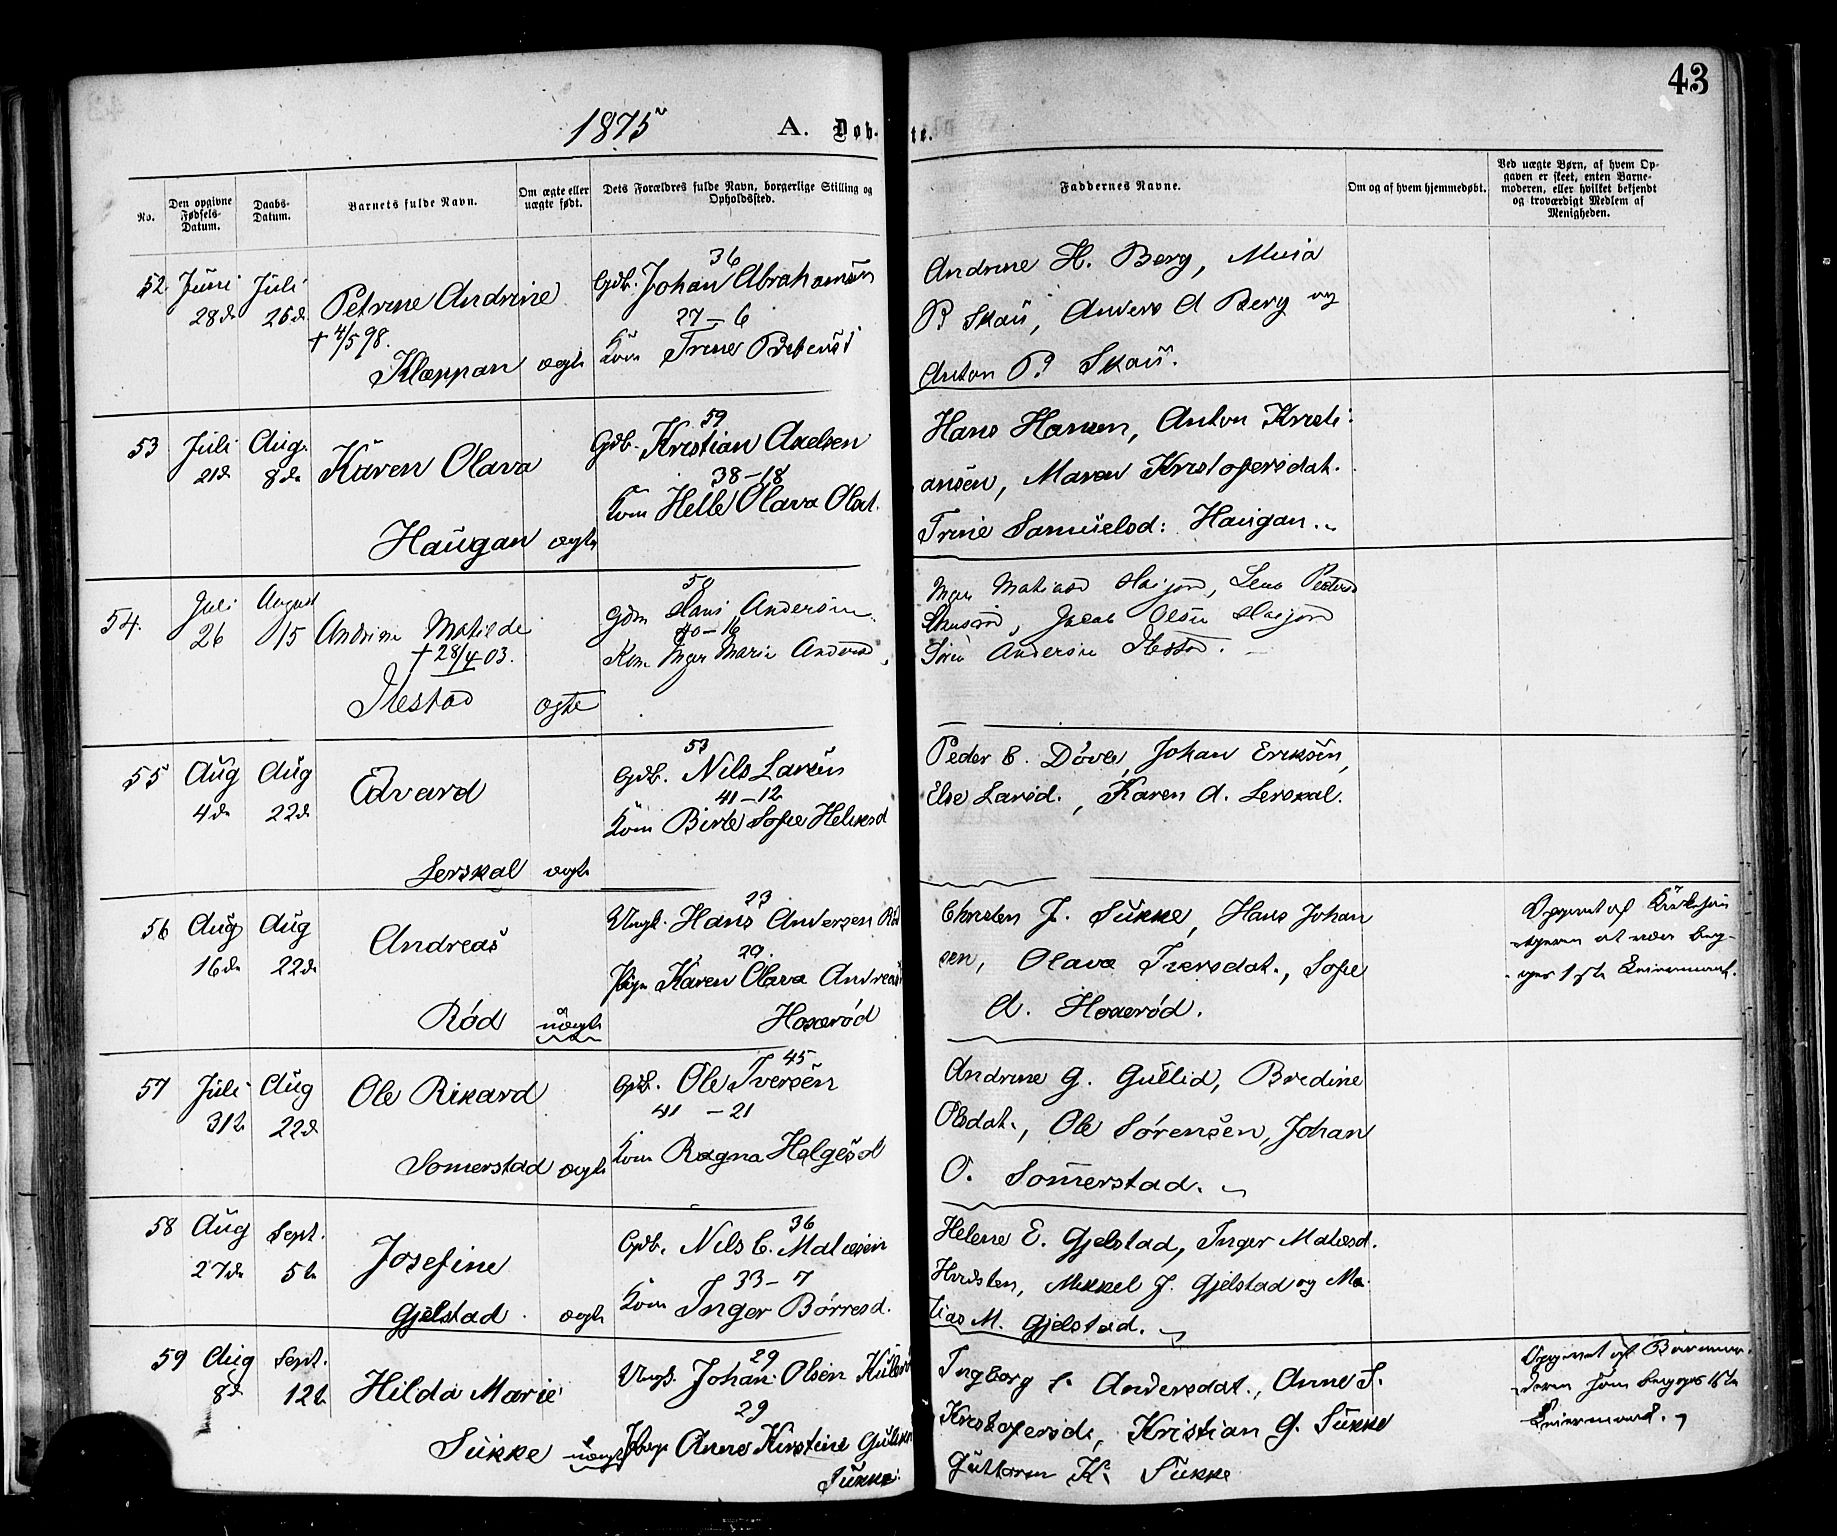 43
1875
A. Døb-te.
No.
Den opgivne Fødsels-Datum.
Daabs-Datum.
Barnets fulde Navn.
Om ægte eller uægte født.
Dets Forældres fulde Navn, borgerlige Stilling og Opholdssted.
Faddernes Navne.
Om og af hvem hjemmedøbt.
Ved uægte Børn, af hvem Opgaven er skeet, enten Barnemoderen, eller hvilket bekjendt og troværdigt Medlem af Menigheden.
52 Juni 28de Juli 25de
Petrine Andrine
+ 4/5 98.
Klæppan ægte
36
Gdb. Johan Abrahamsen
27 – 6
Kone Trine
Andrine H. Berg,
P Skaü, Anders A Berg og
Anton P. Skaü.
53 Juli 21de Aug. 8de
Karen Olava
Haügan ægte
59
Gdb. Kristian Axelsen
38 – 18
Kone Helle Olava Olsdt.
Hans Hansen, Anton Kristi-
ansen, Maren Kristofersdat.
Trine Samüelsd: Haügan.
54. Juli 26 August 15
Andrine Matilde
+ 28/4 03.
Ilestad ægte
50
Gdm Hans Andersen
40 – 16
Kone Inger Marie Andersd
Inger Matiasd
Jacob Olsen
Andersen Ilestad.
55 Aug 4de Aug 22de
Edvard
Lerskal ægte
53
Gdb. Nils Larsen
41 – 12
Kone Birte Sofie Helgesd
Peder E. Døvle, Johan Eriksen,
Else Larsd., Karen A. Lerskal.
56 Aug 16de Aug 22de
Andreas
Rød uægte
23
Ungk. Hans Andersen Rød
29.
Pige Karen Olava Andreasd
Hoxerød
Christen J. Sükke, Hans Johan
sen, Olava Iversdat., Sofie
A. Hoxerød.
Opgivet af Kirkesan-
geren at være beg-
ges 1ste Leiermaal.
57 Juli 31te Aug 22de
Ole Rikard
Somerstad ægte
45
Gdb. Ole Iversen
41 – 21
Kone Ragna Helgesd
Andrine G. Güllid, Bredine
Olsdat., Ole Sørensen, Johan
O. Somerstad.
58 Aug 27de Sept. 5te
Josefine
Gjelstad. ægte
36
Gdb. Nils C. Matiesen
33 – 7
Kone Inger Børresd.
Helene E. Gjelstad, Inger Matiesd.
Hvidsten, Mikkel J. Gjelstad og Ma-
tias M. Gjelstad.
59 Aug 8de Sept. 12te
Hilda Marie
Sükke uægte
29
Ungk. Johan Olsen
29
Pige Anne Kirstine
Sükke.
Ingborg Andersdat., Anne J.
Kristofersdt, Kristian G. Sükke
Guttorm K. Sükke
Opgivet af Barnemo-
deren som begges 1ste
Leiermaal.